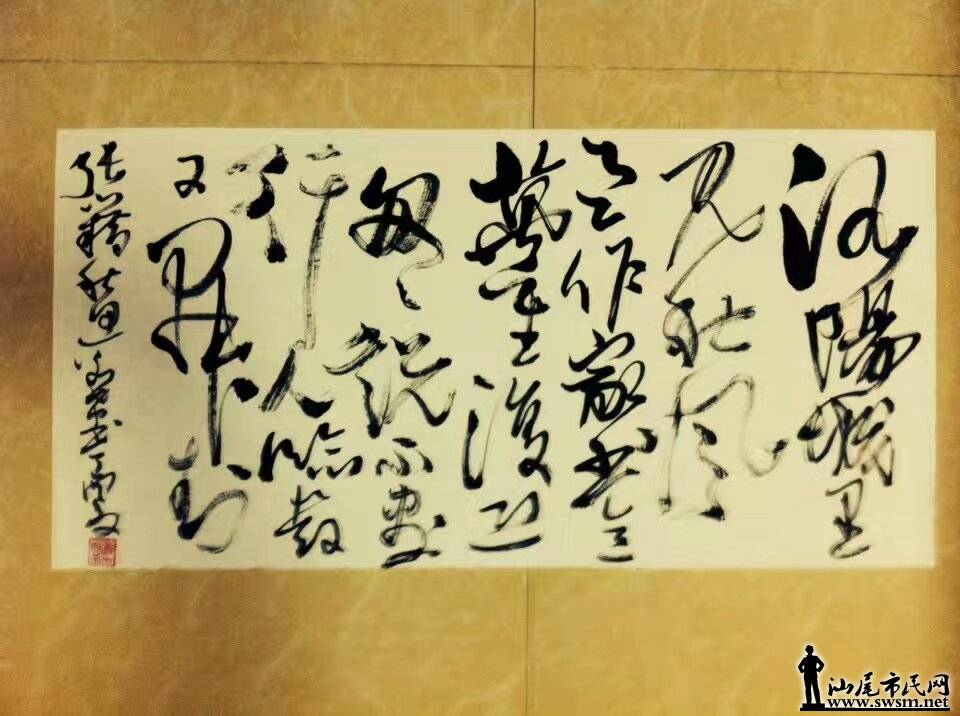 洛陽城里
见秋风
欲作家书意
萬重復恐
匆々说不尽
行人临發
又開封
張籍秋思
汕尾市民网
www.swsm.net